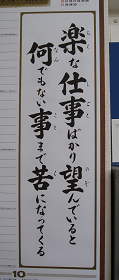 楽な仕事ばかり望んでいると
何でもない事まで苦になってくる
10